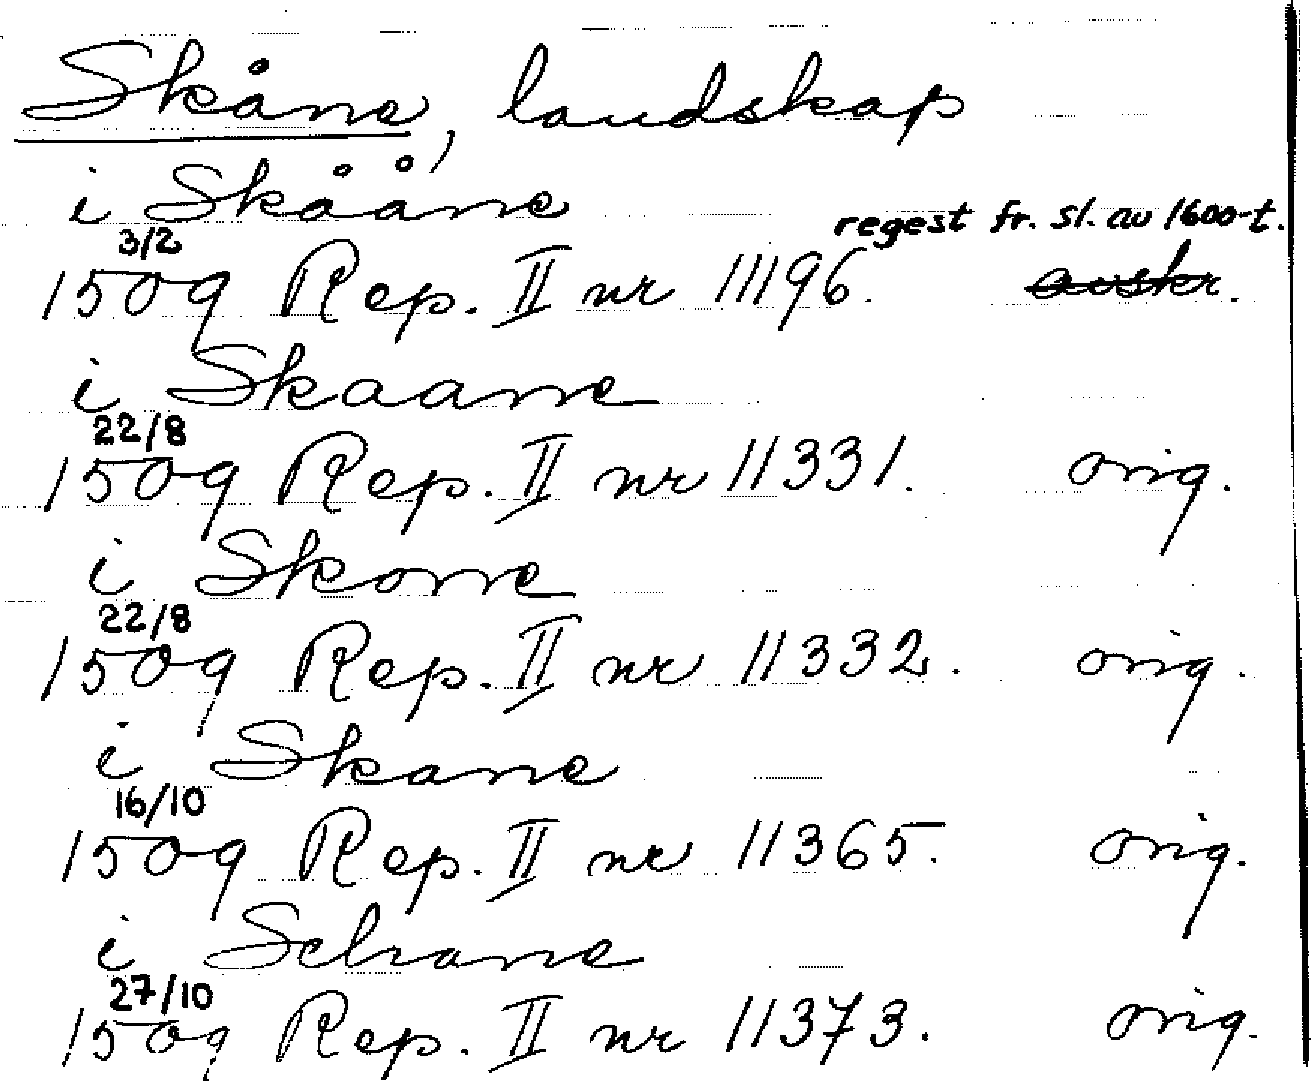 Skåne, landskap
i Skååne
3/2 regest fr. sl. av 1600-t.
1509 Rep. II nr 11196. avskr.
i Skaane
22/8
1509 Rep. II nr 11331. orig.
i Skone
22/8
1509 Rep. II nr 11332. orig.
i Skane
16/10
1509 Rep. II nr 11365. orig.
i Schane
27/10
1509 Rep. II nr 11373. orig.